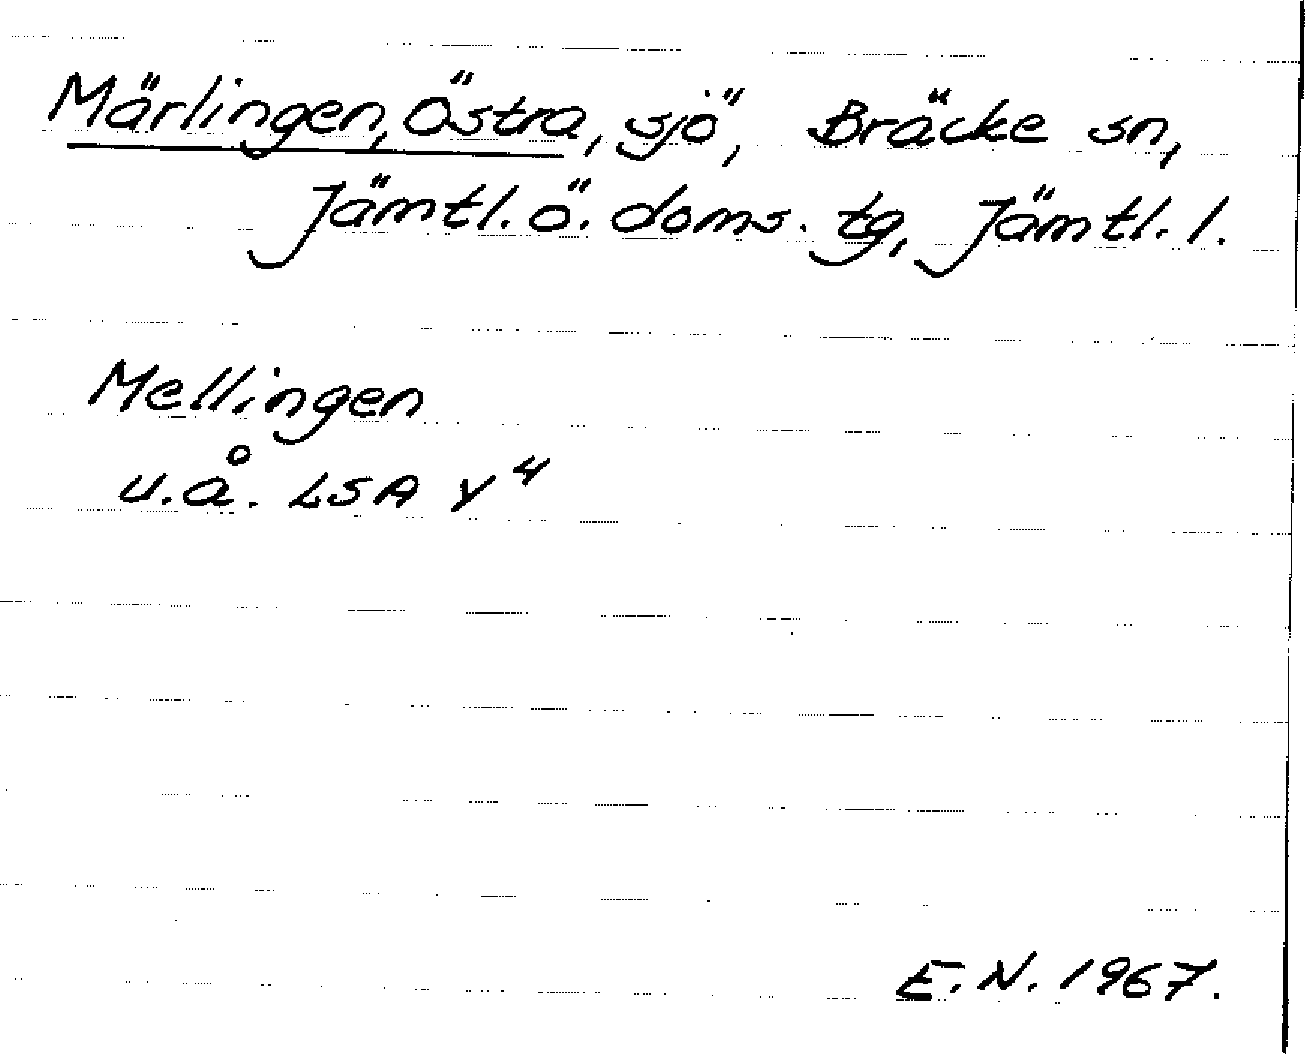 Märlingen, Östra, sjö, Bräcke sn,
Jämtl. ö. doms. tg, Jämtl. l.
Mellingen
u.å. LSA Y⁴
E.N. 1967.